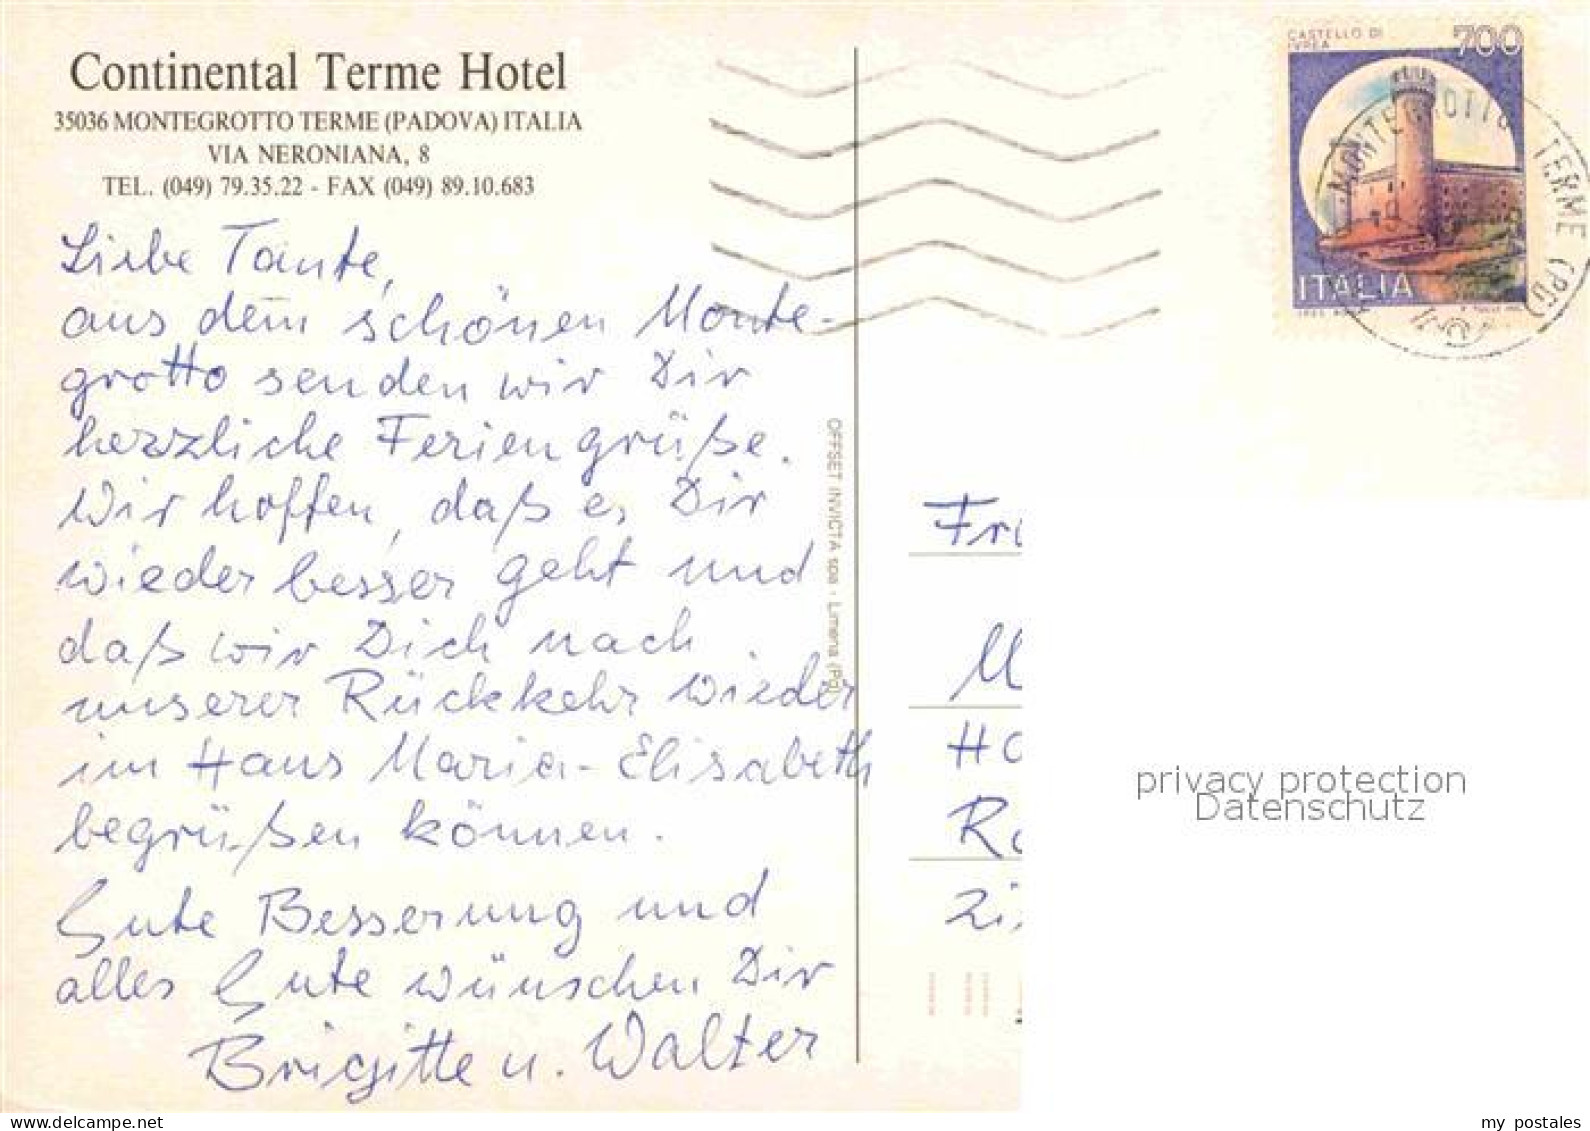 Continental Terme Hotel
35036 MONTEGROTTO TERME (PADOVA) ITALIA
VIA NERONIANA, 8
TEL. (049) 79.35.22 - FAX (049) 89.10.683
Liebe Tante,
aus dem schönen Monte-
grotto senden wir Dir
herzliche Feriengrüße.
Wir hoffen, daß es Dir
wieder besser geht und
daß wir Dich nach
unserer Rückkehr wieder
im Haus Maria-Elisabeth
begrüßen können.
Gute Besserung und
alles Gute wünschen Dir
Brigitte u. Walter
OFFSET INVICTA spa - Limena (Pd)
CASTELLO DI
IVREA
700
ITALIA
MONTEGROTTO TERME (PD)
Fri
M
Ha
Ra
Zi
privacy protection
Datenschutz
delcampe.net
my_postales